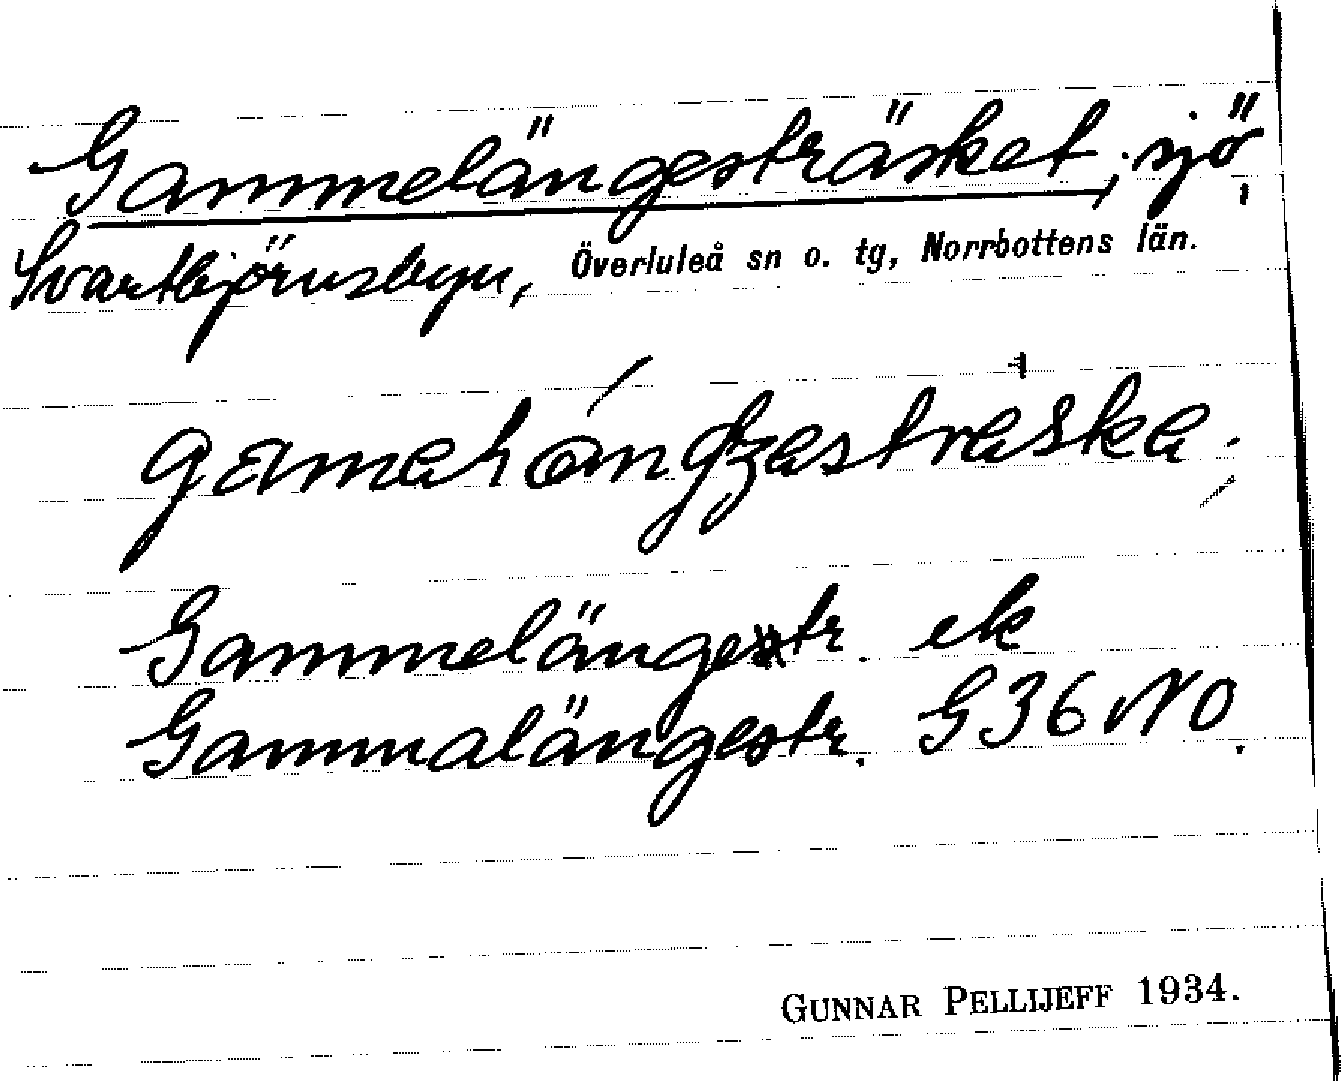 Gammelängesträsket, sjö,
Svartbjörnsbyn, Överluleå sn o. tg, Norrbottens län.
Gammelängestr. ek
Gammalängestr. G 36 NO.
GUNNAR PELLIJEFF 1934.